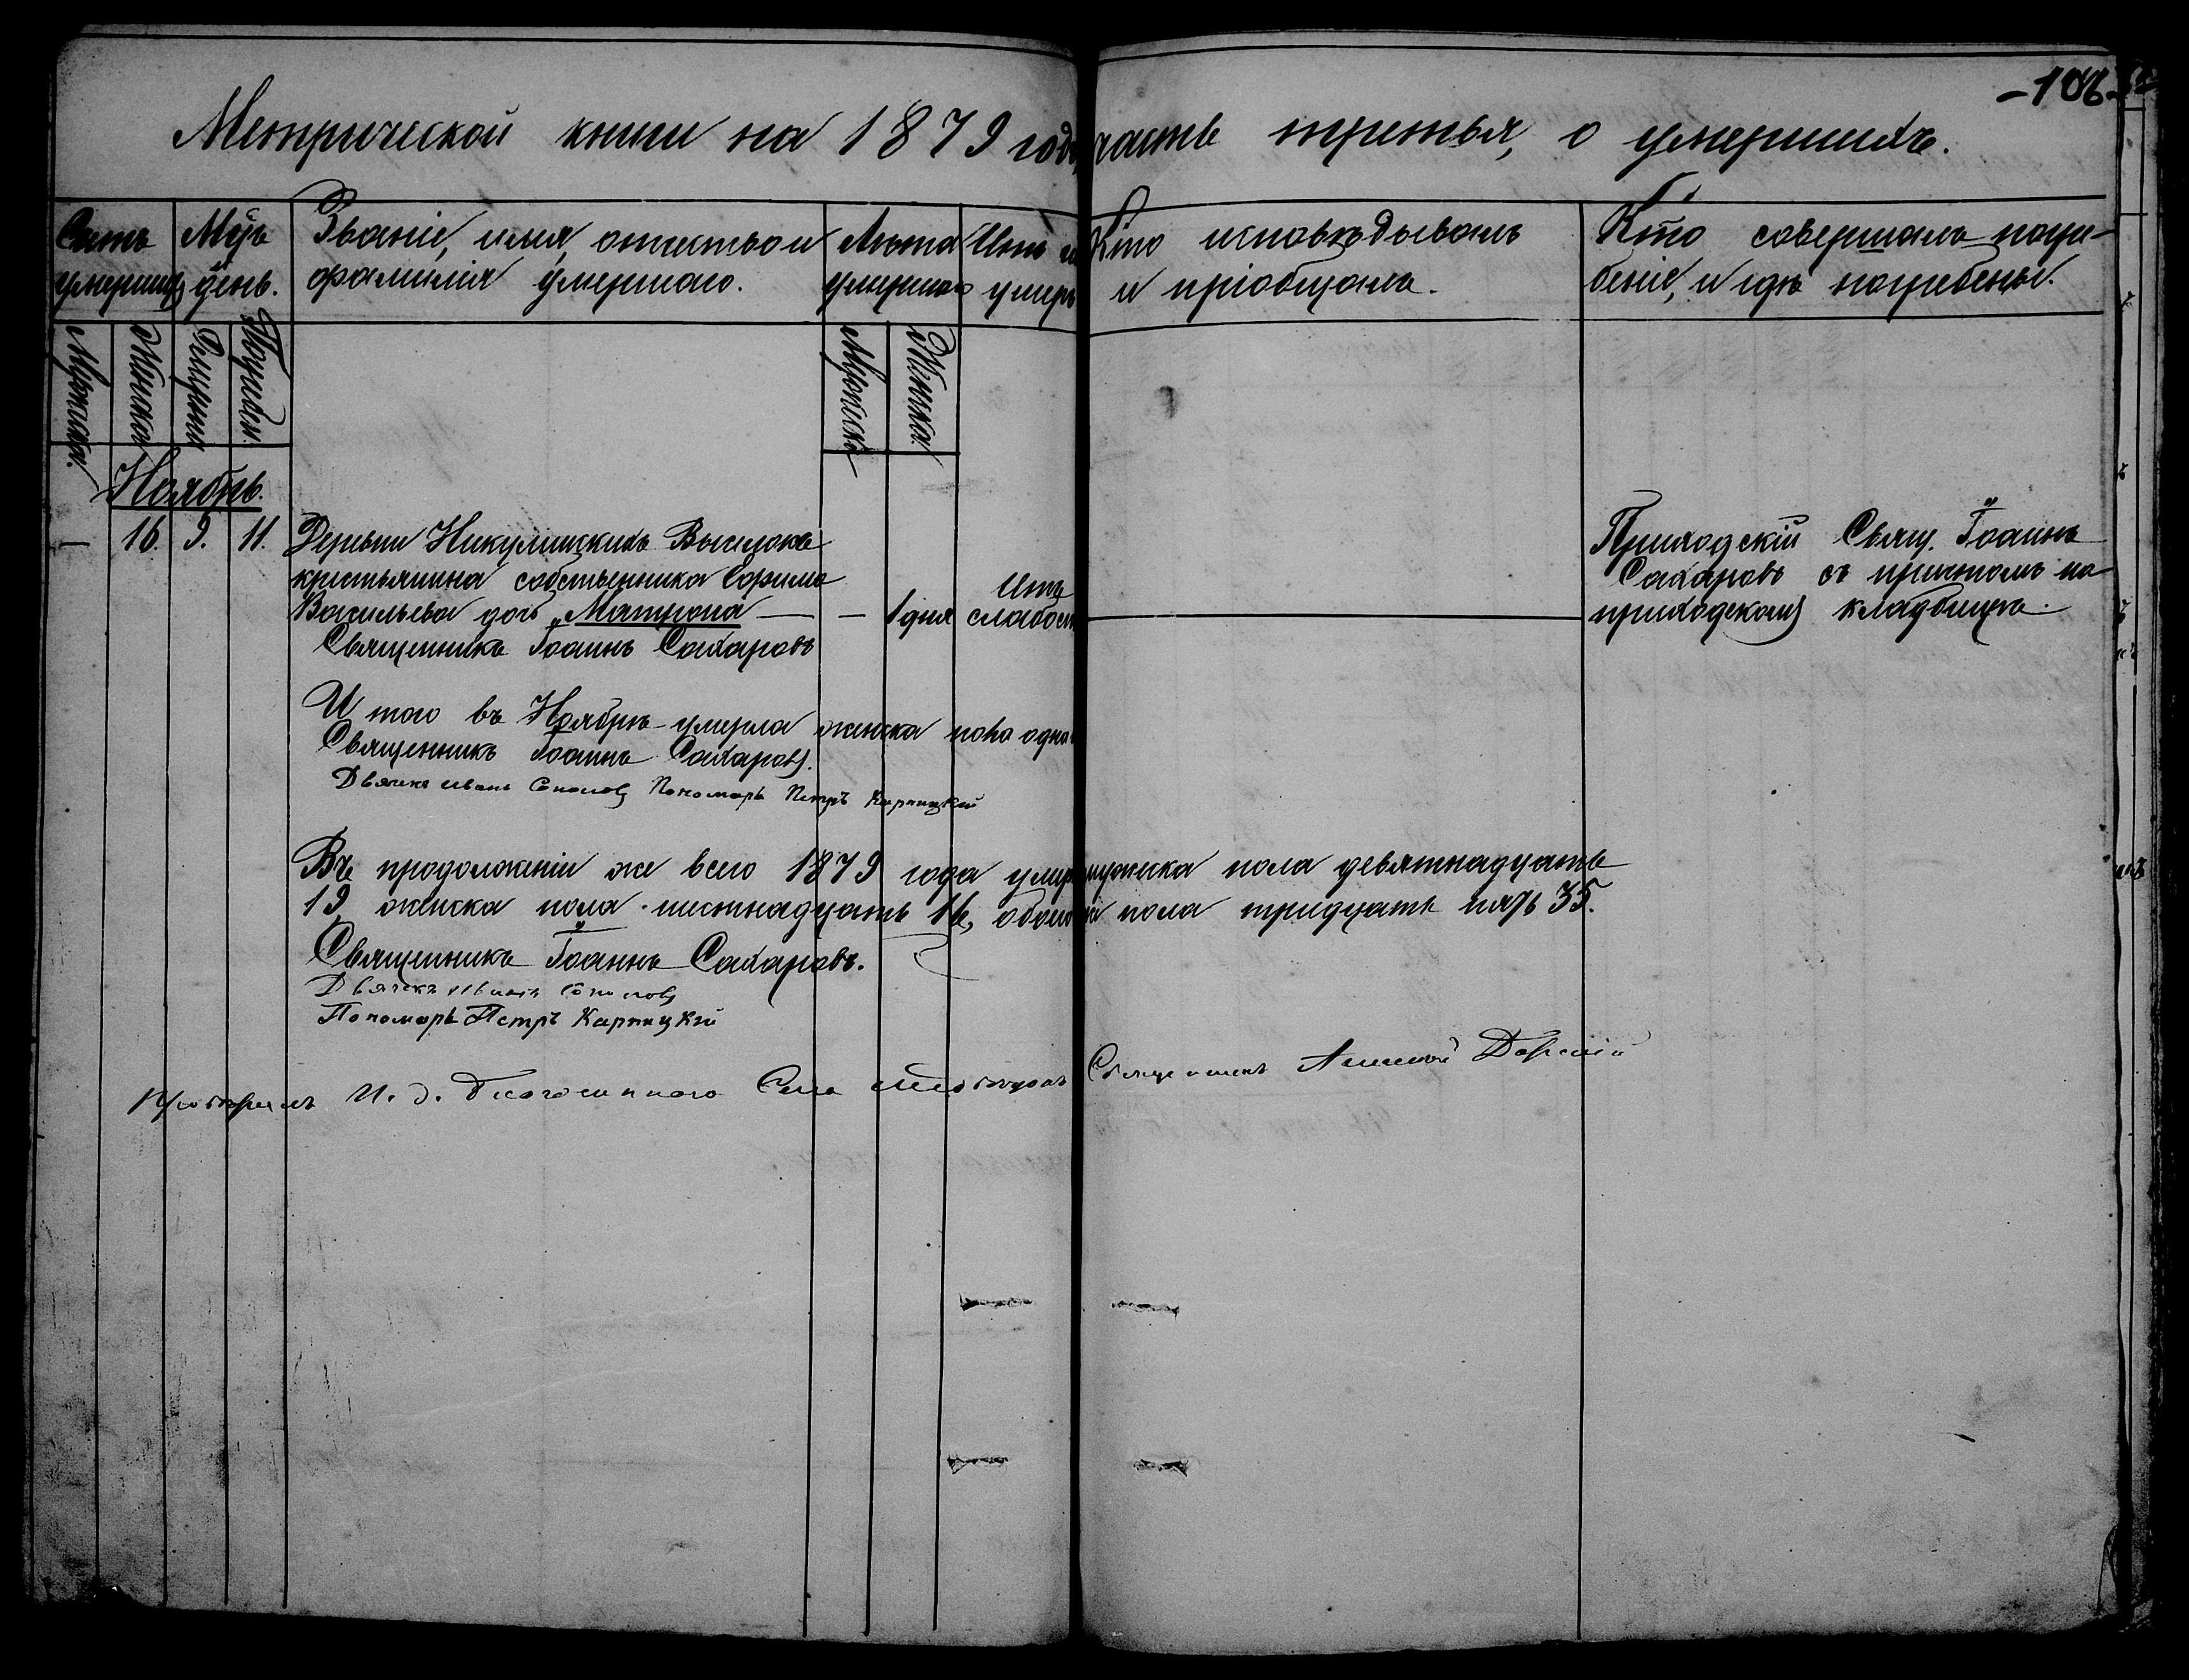 -106-
Метрической книги на 1879 годъ, часть третья, о умершихъ.
Счетъ умершихъ
Мѣц. день.
Званіе, имя, отчество и фамилія умершаго.
Лѣта умершаго
Отъ чего умеръ
Кто исповѣдывалъ и пріобщалъ.
Кто совершалъ погребеніе, и гдѣ погребены.
Мужска.
Женска.
Смерти
Погребен.
Мужеска
Женска.
Ноябрь.
— 16. 9. 11. Деревни Никулицкихъ Выселокъ
крестьянина собственника Ефима
Васильева дочь „Матрона — — 1 дня
Отъ
слабости
Приходскій Свящ. Іоаннъ
Сахаровъ съ причтомъ на
приходскомъ кладбищѣ.
Священникъ Іоаннъ Сахаровъ
И того въ Ноябрѣ умерла женска пола одна
Священникъ Іоаннъ Сахаровъ.
Дьячекъ Иванъ Соколовъ Пономарь Петръ Карпицкій
Въ продолженіи же всего 1879 года умерло мужска пола девятнадцать
19, женска пола шестнадцать 16, обоего пола тридцать пять 35.
Священникъ Іоаннъ Сахаровъ.
Дьячекъ Иванъ Соколовъ
Пономарь Петръ Карпицкій
И. д. Благочиннаго Села Священникъ Алексѣй